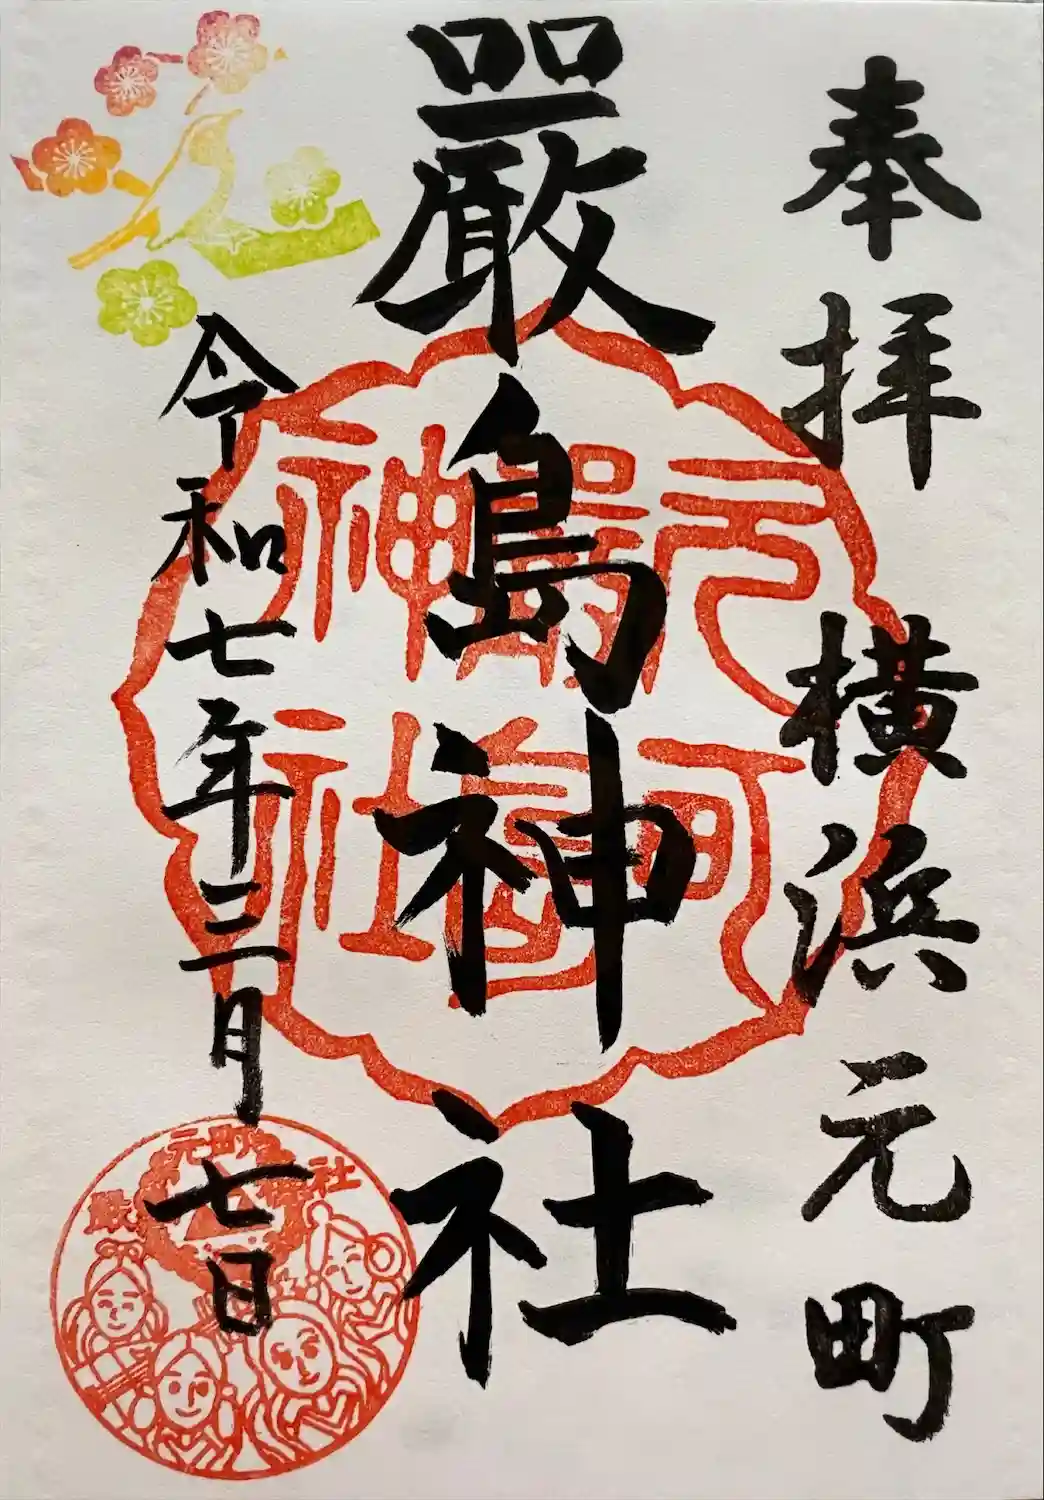 奉拝 横浜元町
嚴島神社
令和七年三月七日
元町
嚴島
神社
元町嚴島神社